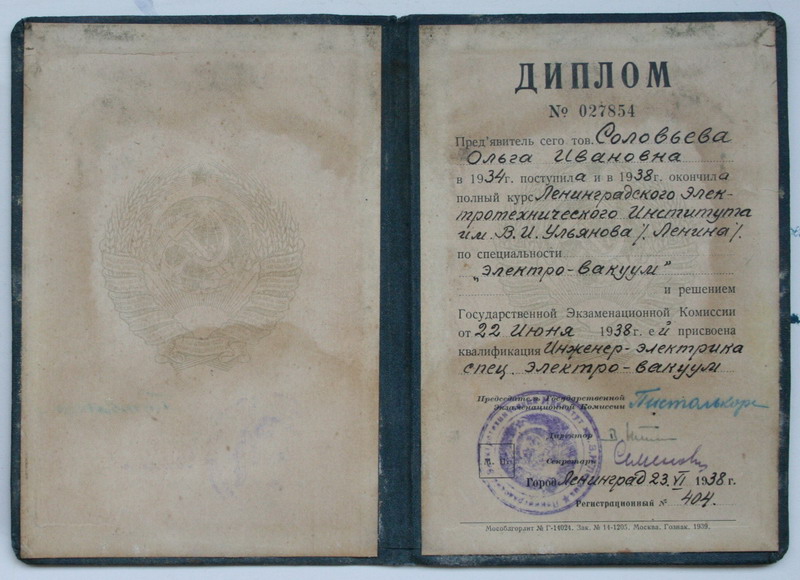 ДИПЛОМ
№ 027854
Пред'явитель сего тов. Соловьева
Ольга Ивановна
в 1934г. поступила и в 1938г. окончила
полный курс Ленинградского Элек-
тротехнического Института
им. В.И. Ульянова /Ленина/.
по специальности
„электро-вакуум"
и решением
Государственной Экзаменационной Комиссии
от 22 Июня 1938г. ей присвоена
квалификация Инженер-электрика
спец. электро-вакуум
Председатель Государственной
Экзаменационной Комиссии Пистолькорс
Директор
Секретарь
Город Ленинград 23.VI 1938г.
Регистрационный № 404.
Мособлгорлит № Г-14024. Зак. № 14-1203. Москва. Гознак. 1939.